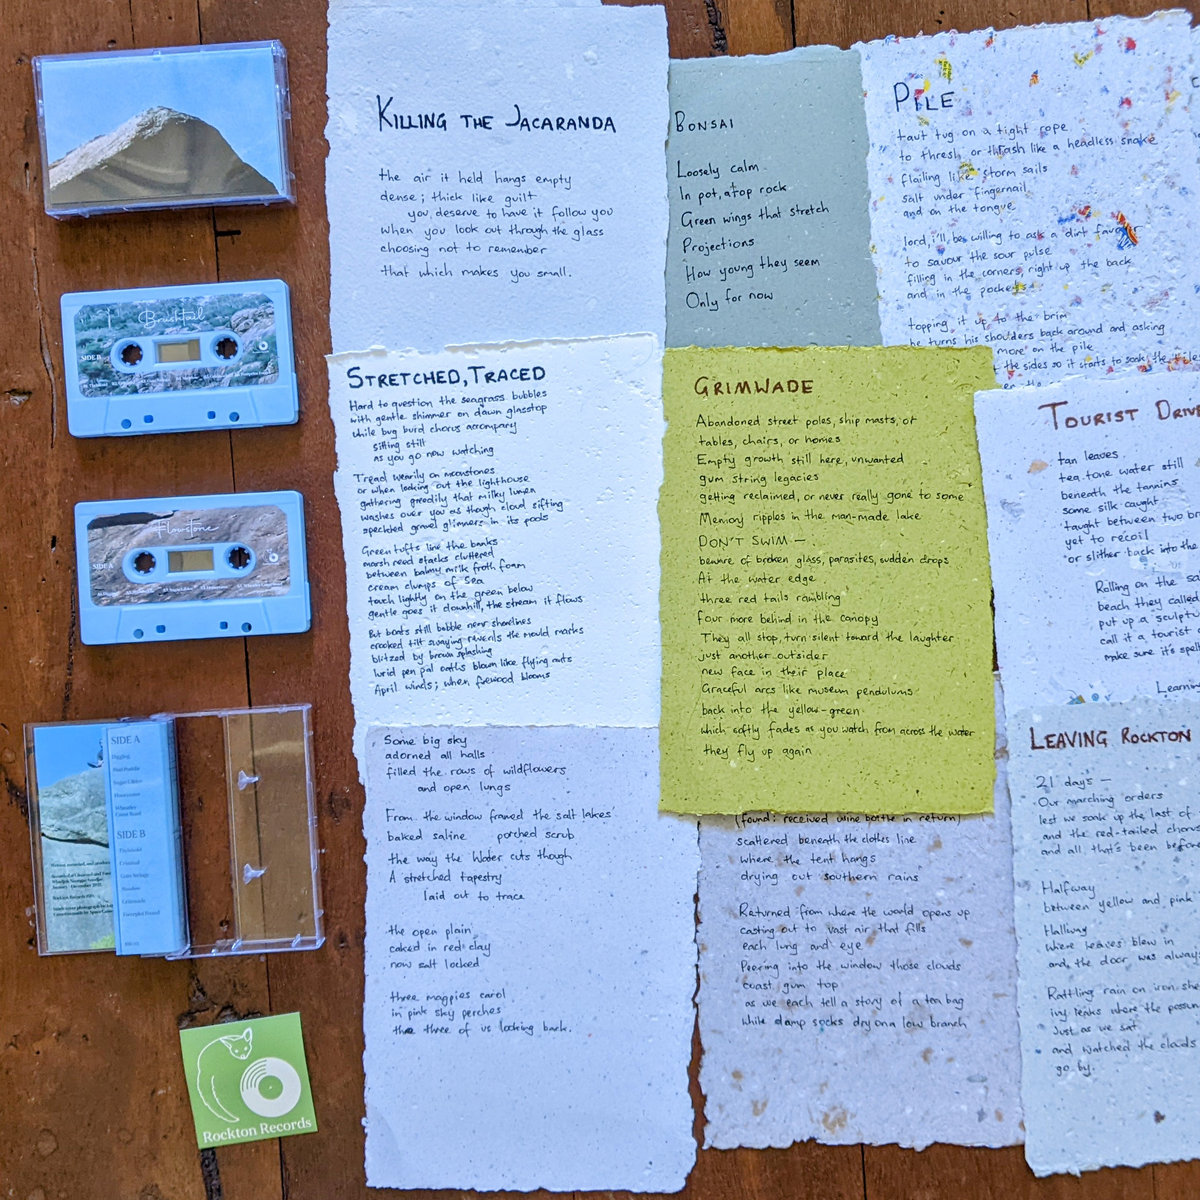 Brushtail
SIDE B
Flowstone
SIDE A
SIDE A
Digging
SIDE B
Threshold
Criminal
Rockton Records
KILLING THE JACARANDA
the air it held hangs empty
dense; thick like guilt
you deserve to have it follow you
when you look out through the glass
choosing not to remember
that which makes you small.
BONSAI
Loosely calm
In pot, atop rock
Green wings that stretch
Projections
How young they seem
Only for now
PILE
taut tug on a tight rope
to thresh or thrash like a headless snake
flailing like storm sails
salt under fingernail
and on the tongue
lord, i'll be willing to ask a dirt favour
to savour the sour pulse
filling in the corners, right up the back
and in the pockets
topping it up to the brim
he turns his shoulders back around and asking
more on the pile
the sides so it starts to soak the tiles
STRETCHED, TRACED
Hard to question the seagrass bubbles
with gentle shimmer on dawn glasstop
while bug burd chorus accompany
sitting still
as you go now watching
Tread wearily on moonstones
or when looking out the lighthouse
gathering greedily that milky lumen
washes over you as though cloud sifting
speckled gravel glimmers in its pools
Green tufts line the banks
marsh reed stacks cluttered
between balmy milk froth foam
cream clumps of sea
touch lightly on the green below
gentle goes it downhill, the stream it flows
But boats still bobble near shorelines
crooked tilt swaying reveals the mould marks
blitzed by brown splashing
lurid pen pal oaths blown like flying nuts
April winds; when firewood blooms
GRIMWADE
Abandoned street poles, ship masts, or
tables, chairs, or homes
Empty growth still here, unwanted
gum string legacies
getting reclaimed, or never really gone to some
Memory ripples in the man-made lake
DON'T SWIM —
beware of broken glass, parasites, sudden drops
At the water edge
three red tails rambling
four more behind in the canopy
They all stop, turn silent toward the laughter
just another outsider
new face in their place
Graceful arcs like museum pendulums
back into the yellow-green
which softly fades as you watch from across the water
they fly up again
TOURIST DRIVE
tan leaves
tea tone water still
beneath the tannins
some silk caught
taught between two
yet to recoil
or slither back into the
Rolling on the
beach they called
put up a sculpt
call it a tourist
make sure it's spelt
Learning
Some big sky
adorned all halls
filled the rows of wildflowers
and open lungs
From the window framed the salt lakes
baked saline porched scrub
the way the water cuts though
A stretched tapestry
laid out to trace
the open plain
caked in red clay
now salt locked
three magpies carol
in pink sky perches
the three of us looking back.
(found: received wine bottle in return)
scattered beneath the clothes line
where the tent hangs
drying out southern rains
Returned from where the world opens up
casting out to vast air that fills
each lung and eye
Peering into the window those clouds
coast gum top
as we each tell a story of a tea bag
while damp socks dry on a low branch
LEAVING ROCKTON
21 days —
Our marching orders
lest we soak up the last of
and the red-tailed
and all that's been before
Halfway
between yellow and pink
Hallway
where leaves blew in
and, the door was always
Rattling rain on iron
ivy leaks where the possum
Just as we sat
and watched the clouds
go by.